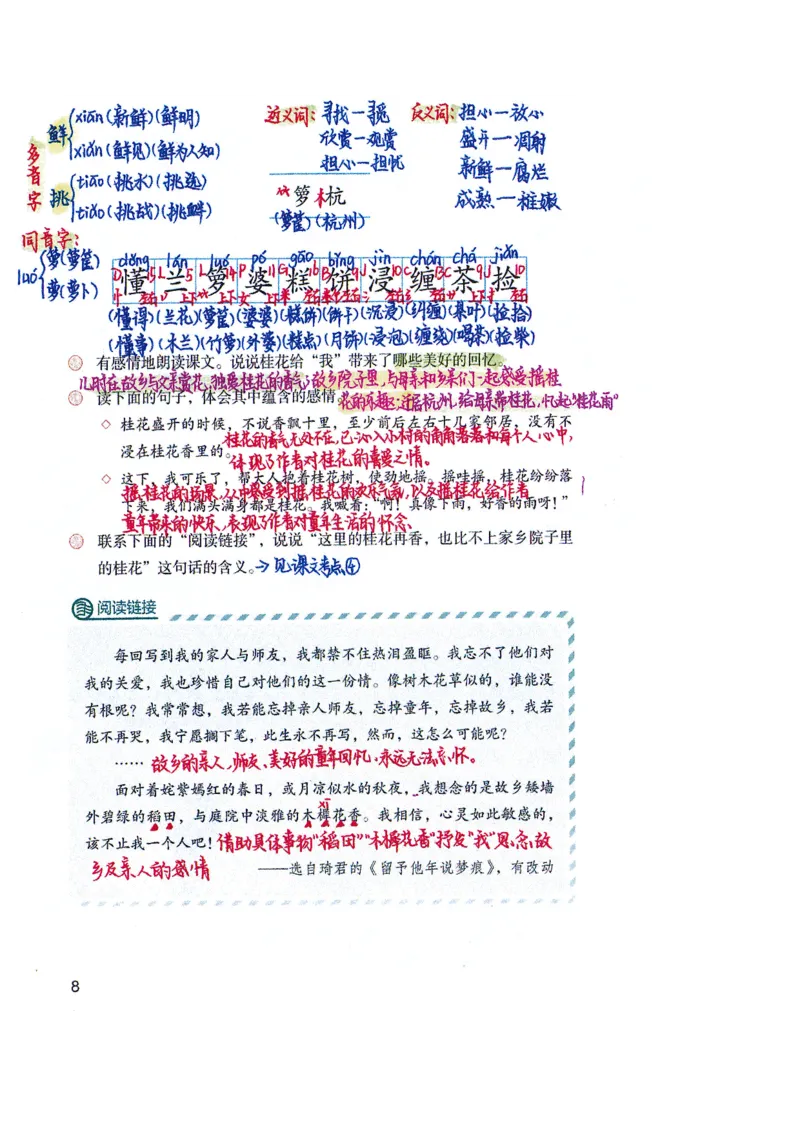 多音字
鲜 xiān(新鲜)(鲜明)
xiǎn(鲜见)(鲜为人知)
挑 tiāo(挑水)(挑选)
tiǎo(挑战)(挑衅)
近义词：寻找—寻觅
欣赏—观赏
担心—担忧
反义词：担心—放心
盛开—凋谢
新鲜—腐烂
成熟—稚嫩
箩 杭
(箩筐)(杭州)
同音字：
luó 箩(箩筐)
萝(萝卜)
dǒng lán luó pó gāo bǐng jìn chán chá jiǎn
懂 兰 箩 婆 糕 饼 浸 缠 茶 捡
(懂得)(兰花)(箩筐)(婆婆)(糕饼)(饼干)(沉浸)(纠缠)(茶叶)(捡拾)
(懂事)(木兰)(竹箩)(外婆)(糕点)(月饼)(浸泡)(缠绕)(喝茶)(捡柴)
有感情地朗读课文。说说桂花给“我”带来了哪些美好的回忆。
儿时在故乡与父亲赏花，独爱桂花的香气；故乡院子里，与母亲和乡亲们一起感受摇桂
花的乐趣；迁居杭州，给母亲带桂花，忆起“桂花雨”
读下面的句子，体会其中蕴含的感情。
◇ 桂花盛开的时候，不说香飘十里，至少前后左右十几家邻居，没有不
浸在桂花香里的。
桂花的香气无处不在，已沁入小村的角角落落和每个人心中，
体现了作者对桂花的喜爱之情。
◇ 这下，我可乐了，帮大人抱着桂花树，使劲地摇。摇哇摇，桂花纷纷落
下来，我们满头满身都是桂花。我喊着：“啊！真像下雨，好香的雨呀！”
摇桂花的场景，从中感受到摇桂花的欢乐气氛，以及摇桂花给作者
童年带来的快乐，表现了作者对童年生活的怀念。
联系下面的“阅读链接”，说说“这里的桂花再香，也比不上家乡院子里
的桂花”这句话的含义。→见课文考点④
阅读链接
每回写到我的家人与师友，我都禁不住热泪盈眶。我忘不了他们对
我的关爱，我也珍惜自己对他们的这一份情。像树木花草似的，谁能没
有根呢？我常常想，我若能忘掉亲人师友，忘掉童年，忘掉故乡，我若
能不再哭，我宁愿搁下笔，此生永不再写，然而，这怎么可能呢？
…… 故乡的亲人、师友、美好的童年回忆，永远无法忘怀。
面对着姹紫嫣红的春日，或月凉似水的秋夜，我想念的是故乡矮墙
xī
外碧绿的稻田，与庭院中淡雅的木樨花香。我相信，心灵如此敏感的，
该不止我一个人吧！借助具体事物“稻田”“木樨花香”抒发“我”思念故
乡及亲人的感情
——选自琦君的《留予他年说梦痕》，有改动
8